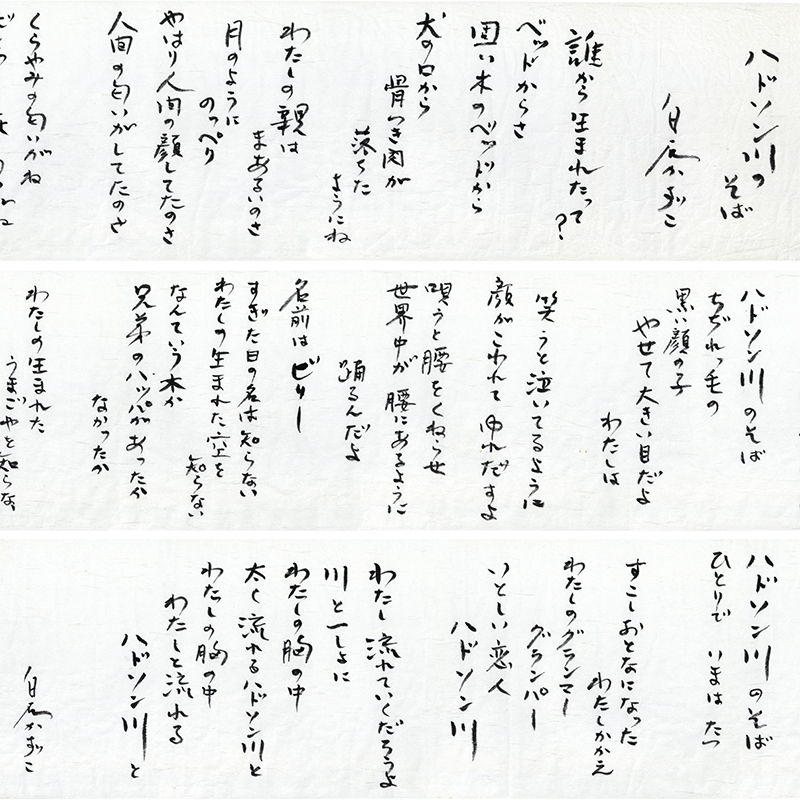 ハドソン川の
そば
白石かずこ
誰から生まれたって?
ベッドからさ
固い木のベッドから
犬の口から
骨つき肉が
落ちた
ようにね
わたしの親は
まあるいのさ
月のように
のっぺり
やはり人間の顔してたのさ
人間の匂いがしてたのさ
くらやみの匂いがね
ハドソン川のそば
ちぢれっ毛の
黒い顔の子
やせて大きい目だよ
わたしは
笑うと泣いてるように
顔がこわれて ゆれだすよ
唄うと腰をくねらせ
世界中が腰にあるように
踊るんだよ
名前はビリー
すぎた日の名は知らない
わたしの生まれた空を
知らない
なんていう木か
兄弟のハッパがあったか
なかったか
わたしの生まれた
うまごやを知らな
ハドソン川のそば
ひとりで いまは たつ
すこしおとなになった
わたしかかえ
わたしのグランマー
グランパー
いとしい恋人
ハドソン川
わたし流れていくだろうよ
川と一しょに
わたしの胸の中
太く流れるハドソン川と
わたしの胸の中
わたしと流れる
ハドソン川と
白石かずこ